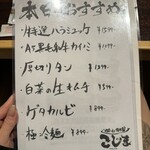 本日のおすすめ
・特選ハラミユッケ ¥1599-
・A5黒毛和牛カイノミ ¥1599-
・厚切りタン
・白菜の生キムチ
・ゲタカルビ ¥899-
・極・冷麺 ¥899-
こじま